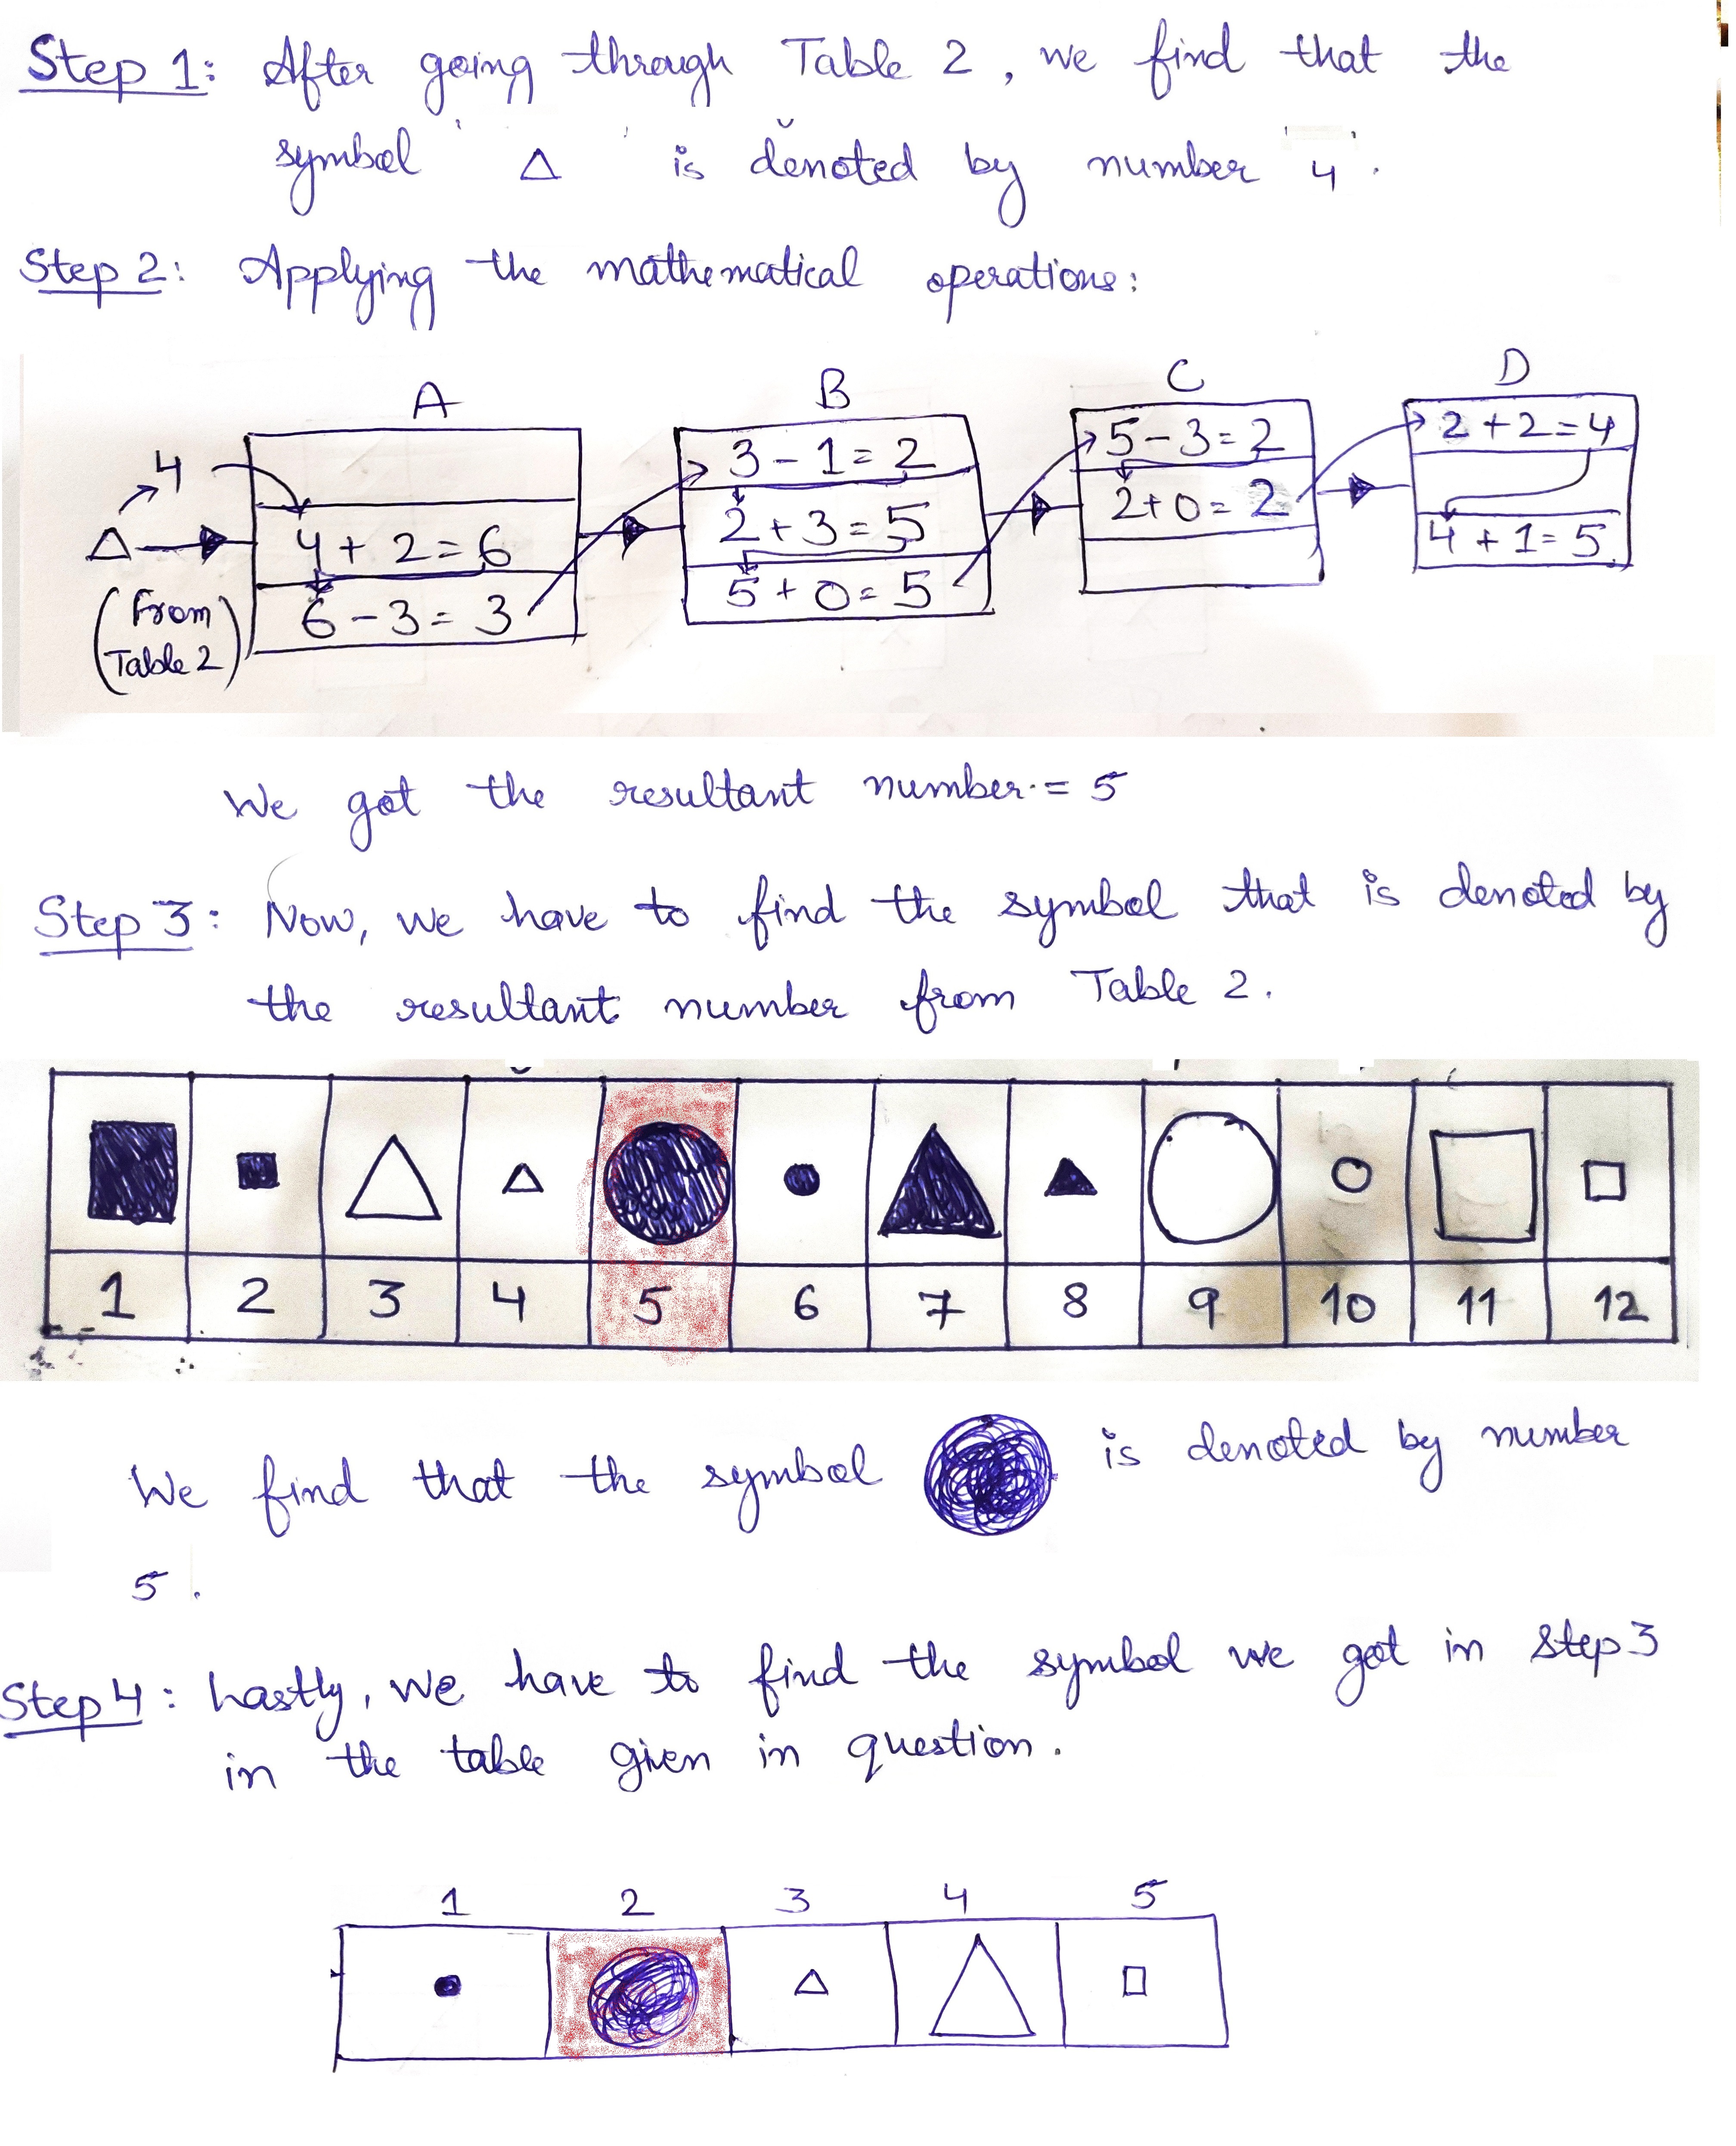 Step 1: After going through Table 2, we find that the
symbol ' △ ' is denoted by number '4'.
Step 2: Applying the mathematical operations:
A B C D
4 3 - 1 = 2 5 - 3 = 2 2 + 2 = 4
△ 4 + 2 = 6 2 + 3 = 5 2 + 0 = 2
(From Table 2) 6 - 3 = 3 5 + 0 = 5 4 + 1 = 5
We got the resultant number = 5
Step 3: Now, we have to find the symbol that is denoted by
the resultant number from Table 2.
1 2 3 4 5 6 7 8 9 10 11 12
We find that the symbol ● is denoted by number
5.
Step 4: Lastly, we have to find the symbol we got in step 3
in the table given in question.
1 2 3 4 5